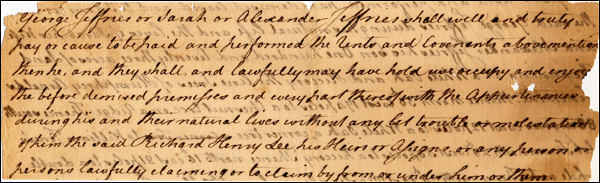 George Jeffries or Sarah or Alexander Jeffries shall well and truly
pay or cause to be paid and performed the Rents and Covenants abovemention
then he, and they shall, and lawfully may have hold use occupy and enjoy
the before demised premisses and every part thereof with the Appurtinances
during his and their natural lives without any let trouble or molestation
of him the said Richard Henry Lee his Heirs or Assigns or any person or
persons lawfully claiming or to claim by from or under him or them